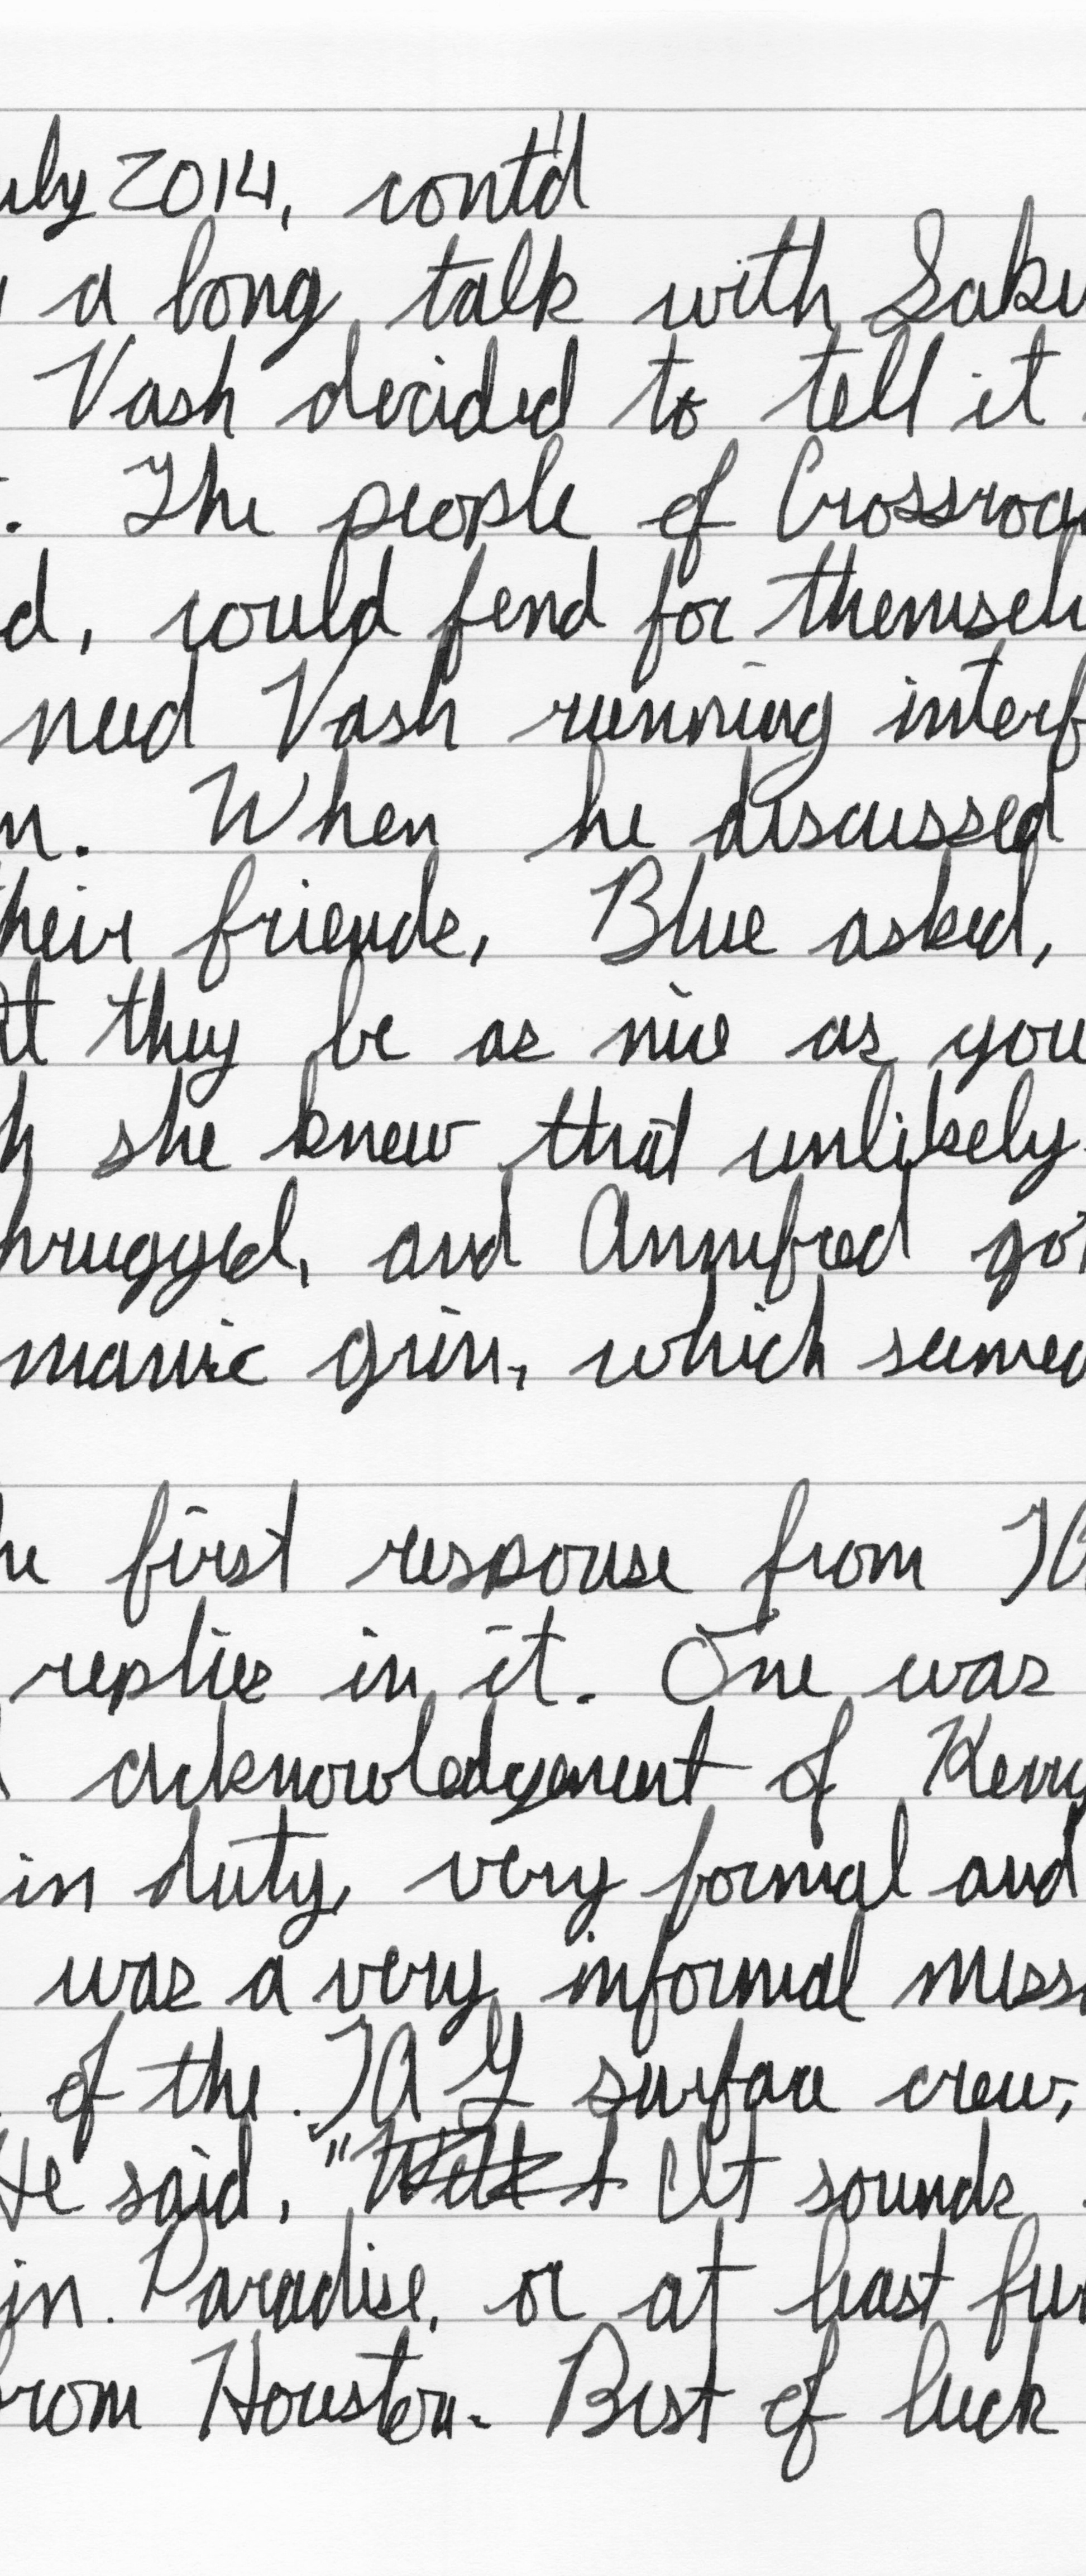 uly 2014, cont'd
a long talk with Saku
Vash decided to tell it
. The people of Crossroa
d, could fend for themselv
need Vash running interf
n. When he discussed
heir friends, Blue asked,
they be as nice as you
h she knew that unlikely.
hrugged, and Annifred got
manic grin, which seemed
he first response from
replies in it. One was
acknowledgement of Kerry
in duty, very formal and
was a very informal mess
of the surface crew,
He said, "It sounds
in Paradise, or at least fur
rom Houston. Best of luck